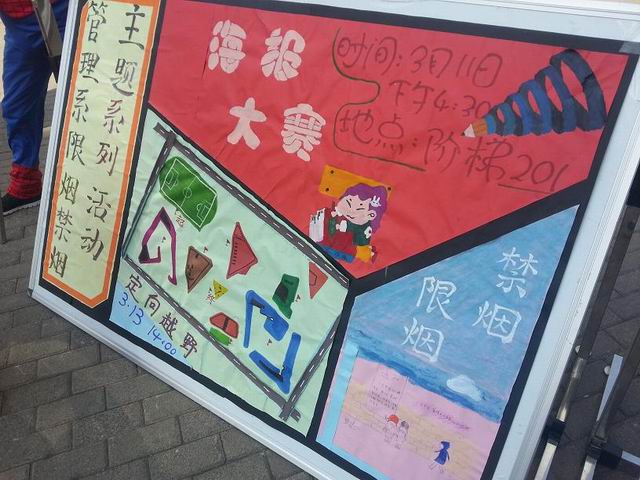 主题系列活动
管理系限烟禁烟
海报
大赛
时间:3月11日
下午4:30
地点:阶梯201
定向越野
3.13 14:00
禁烟
限烟